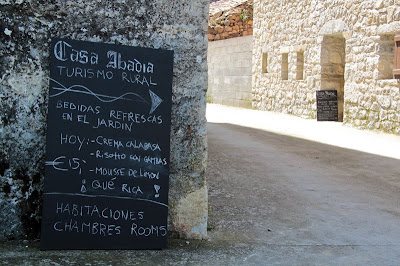 Casa Abadia
TURISMO RURAL
BEBIDAS, REFRESCAS
EN EL JARDIN
HOY: - CREMA CALABASA
- RISOTTO CON GAMBAS
€15,- - MOUSSE DE LIMON
¡ QUÉ RICA !
HABITACIONES
CHAMBRES ROOMS